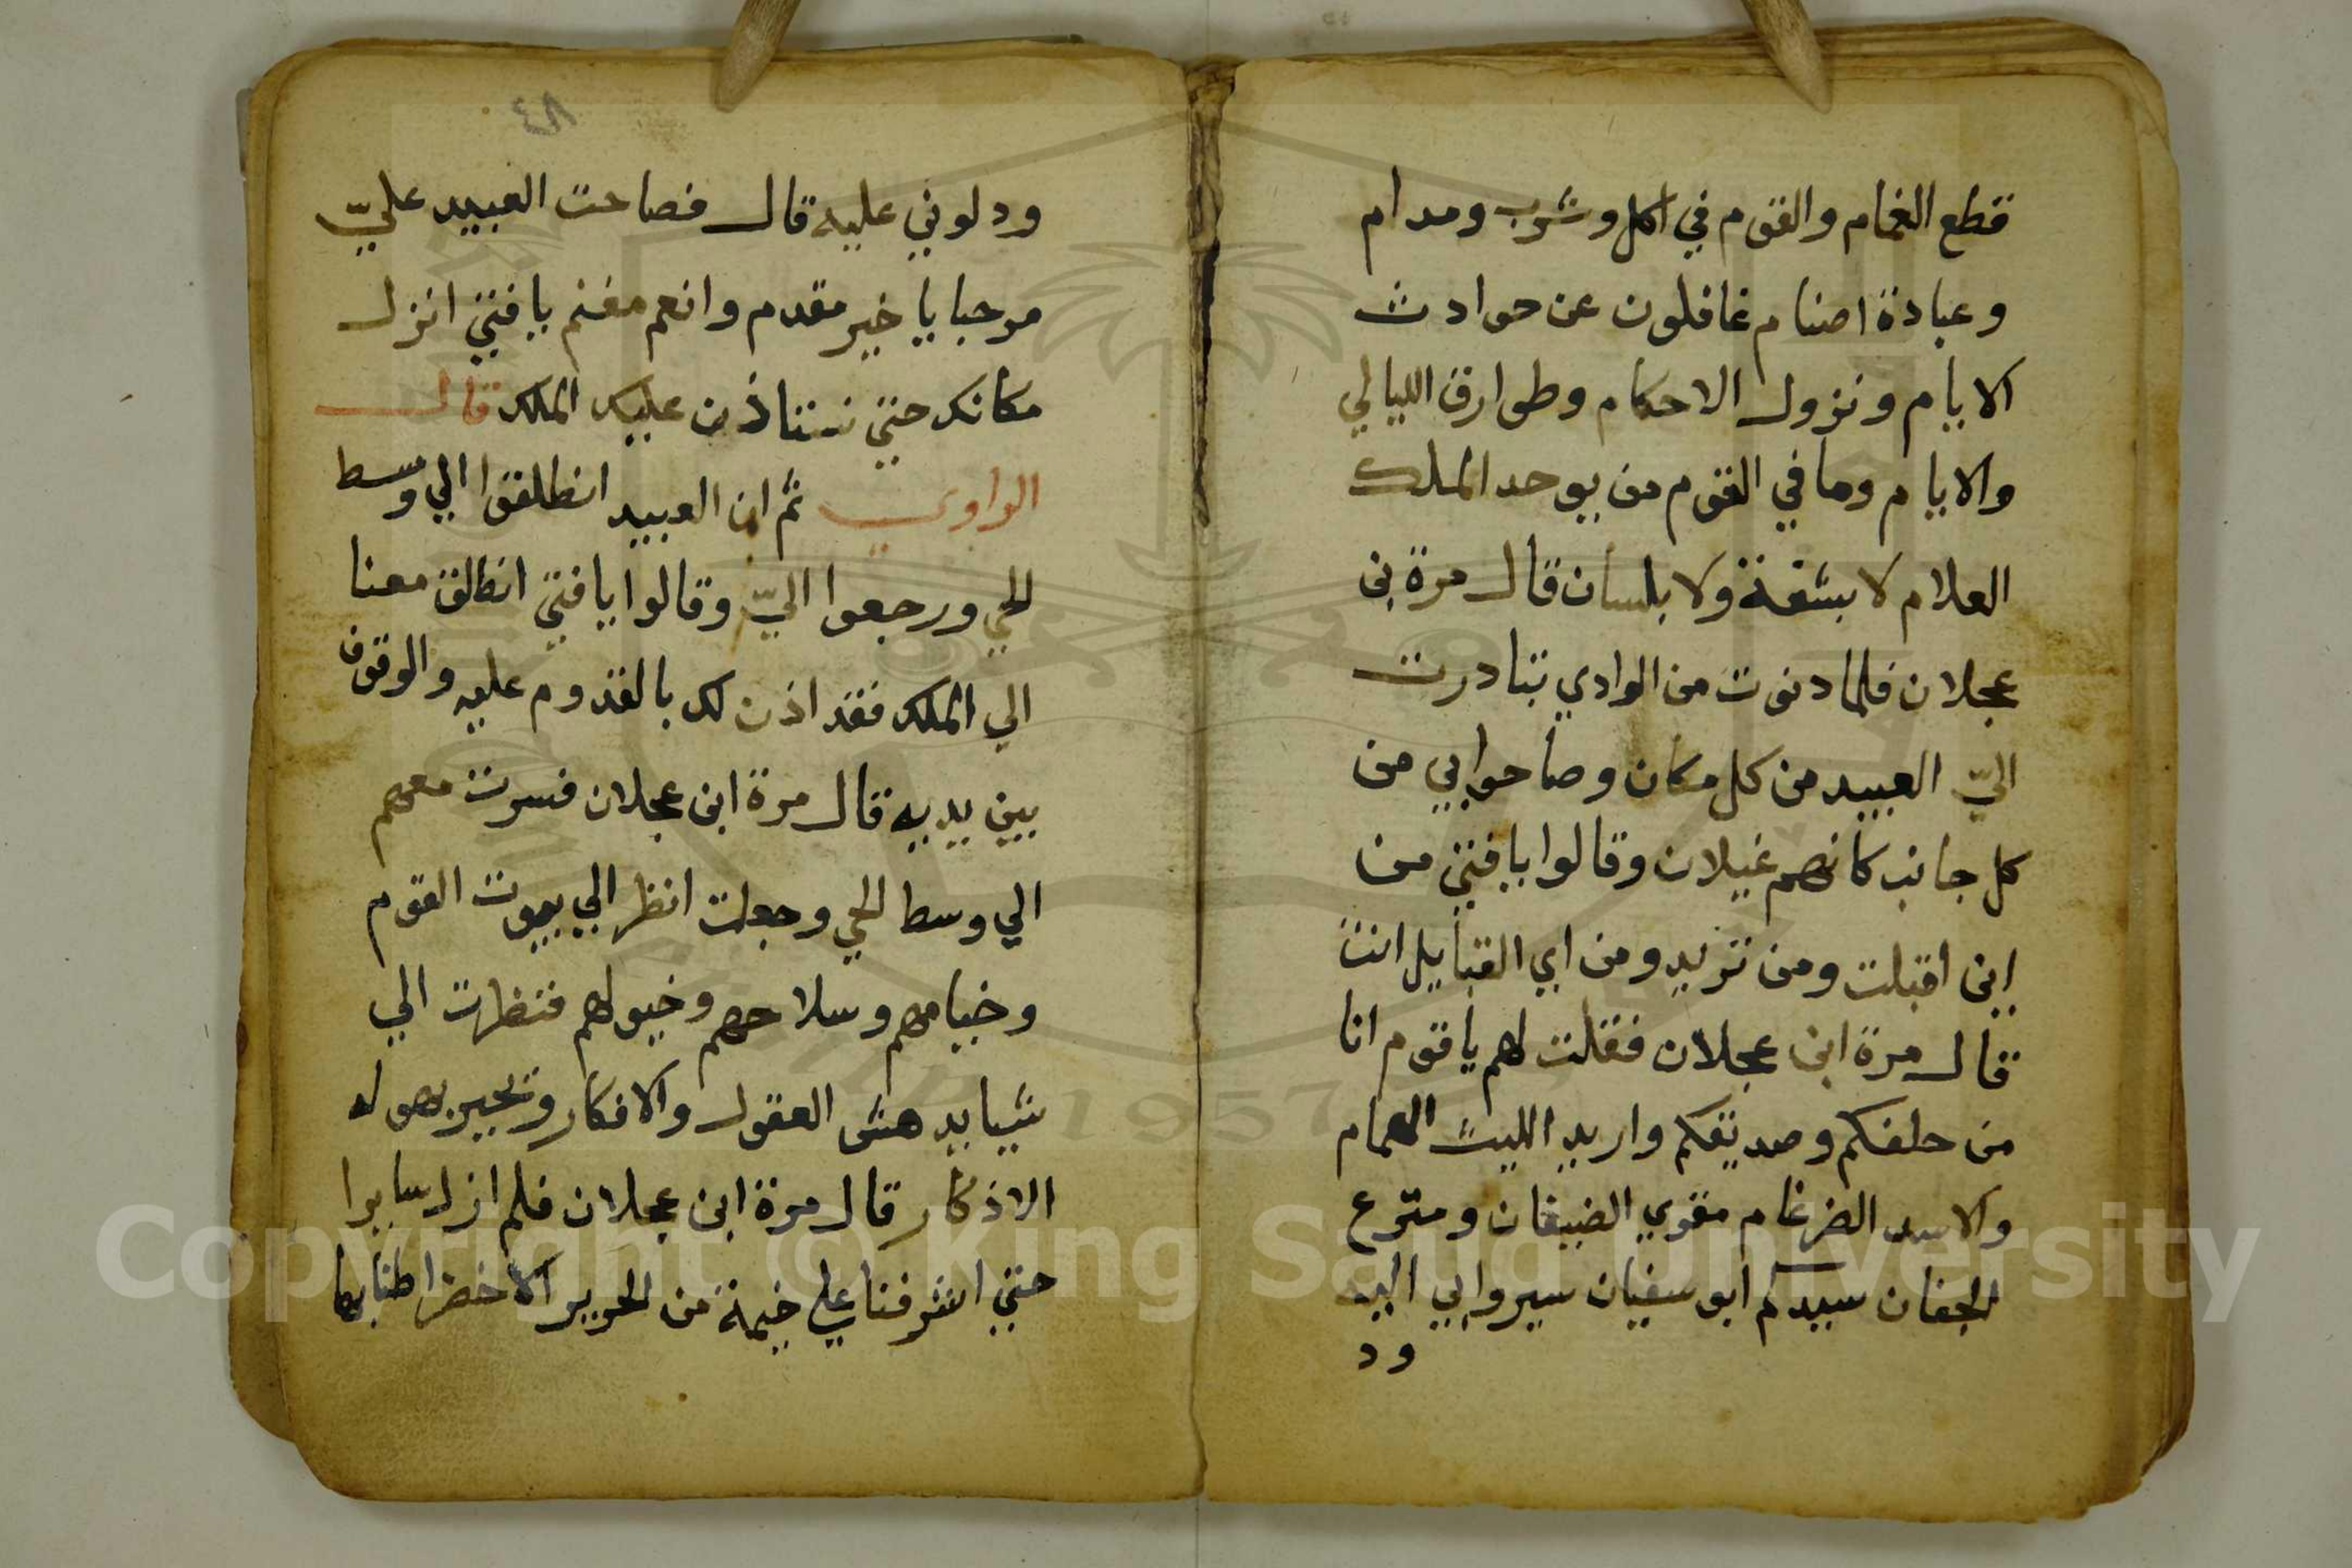 قطع الغمام والقوم في اكل وشرب ومدام
وعبادة اصنام غافلون عن حوادث
الايام ونزول الاحكام وطوارق الليالي
والايام وما في القوم من يوحد الملك
العلام لا بشفة ولا بلسان قال مرة بن
عجلان فلما دنوت من الوادي تبادرت
اليّ العبيد من كل مكان وصاحوا بي من
كل جانب كانهم غيلان وقالوا يافتي من
اين اقبلت ومن تريد ومن اي القبايل انت
قال مرة ابن عجلان فقلت لهم يا قوم انا
من حلفكم وصديقكم واريد الليث الهمام
والاسد الضرغام مقوي الضيفان ومترع
الجفان سيدكم ابو سفيان سيروا بي اليه
ود
٨٤
ودلوني عليه قال فصاحت العبيد عليّ
مرحبا يا خير مقدم وانعم مغنم يافتي انزل
مكانك حتي نستاذن عليك الملك قال
الراوي ثم ان العبيد انطلقوا الي وسط
الحي ورجعوا اليّ وقالوا يا فتي انطلق معنا
الي الملك فقد اذن لك بالقدوم عليه والوقوف
بين يديه قال مرة ابن عجلان فسرت معهم
الي وسط الحي وجعلت انظر الي بيوت القوم
وخيامهم وسلاحهم وخيولهم فنظرت الي
شيا يدهش العقول والافكار وتحير بهوله
الاذكار قال مرة ابن عجلان فلم ازل سايرا
حتي اشرفنا علي خيمة من الحرير الاخضر اطنابها
Copyright © King Saud University
1957